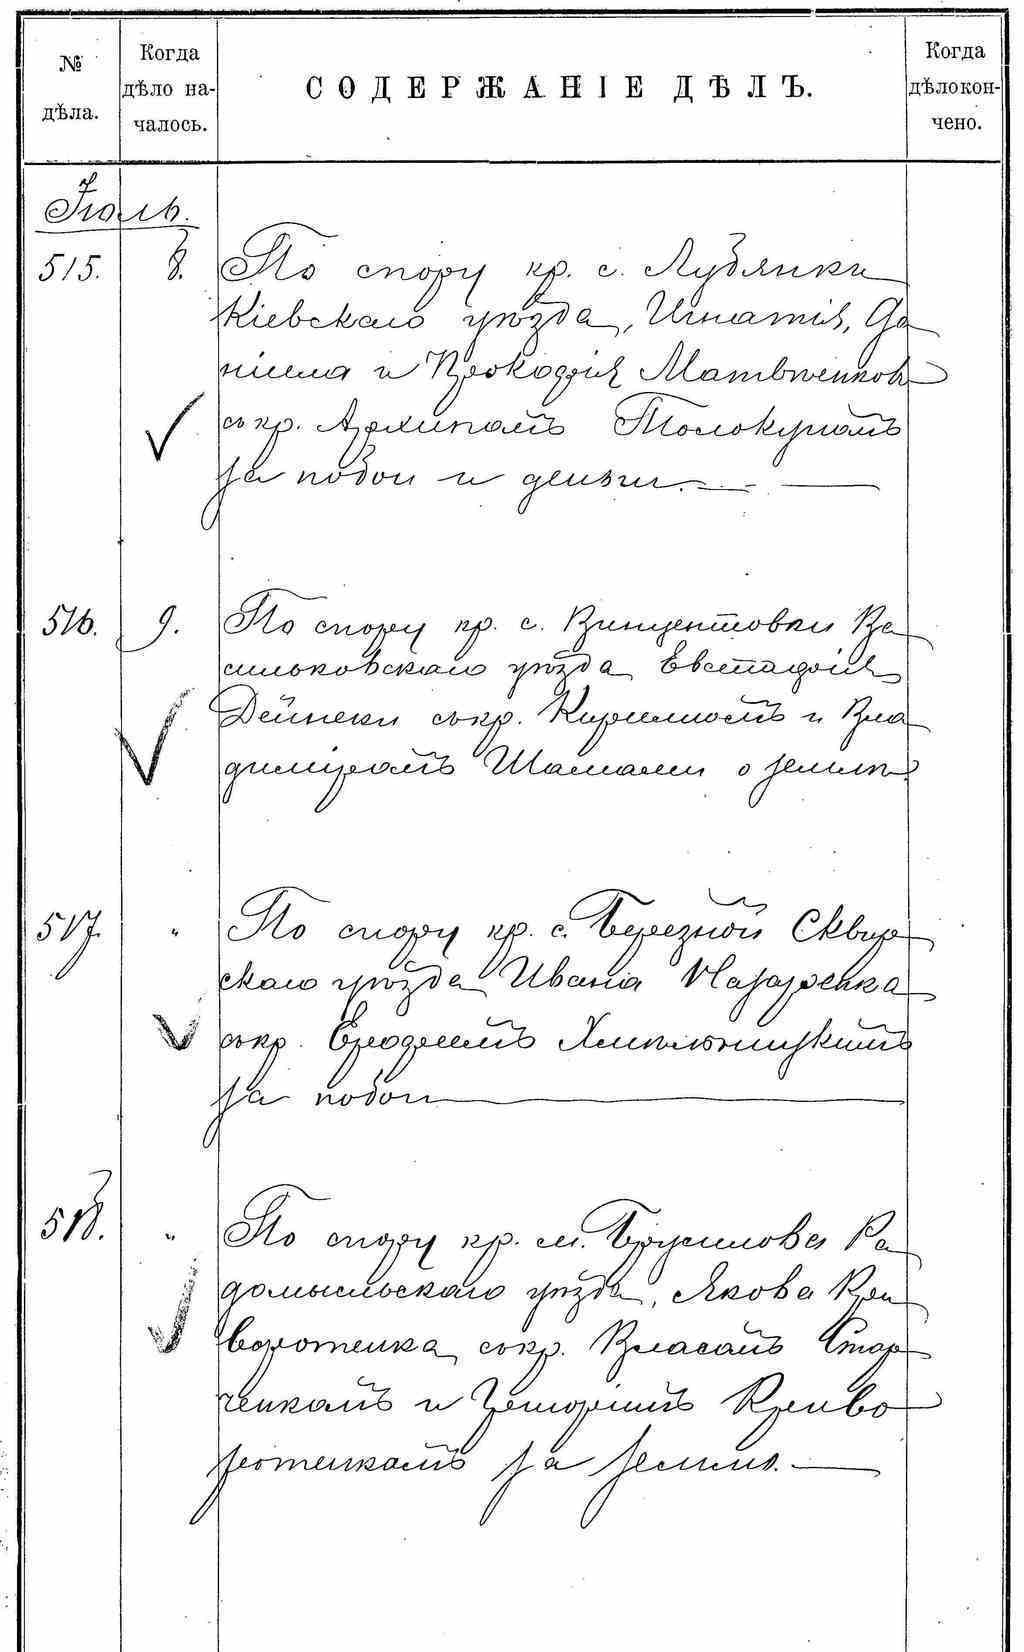 № дѣла.
Когда дѣло на-
чалось.
СОДЕРЖАНІЕ ДѢЛЪ.
Когда дѣло кон-
чено.
Іюль.
515. 8. По спору кр. с. Лубянки
Кіевскаго уѣзда, Игнатія, Да
ніила и Прокофія Матвѣенков
съ кр. Архипомъ Толокуномъ
за побои и деньги.
516. 9. По спору кр. с. Винцентовки Ва
сильковскаго уѣзда Евстафія
Дейнеки съ кр. Кириломъ и Вла
диміромъ Шамами о земли.
517. " По спору кр. с. Березной Сквир
скаго уѣзда Ивана Назаренка
съ кр. Хмѣльницкимъ
за побои
518. " По спору кр. м. Брусилова Ра
домысльскаго уѣзда, Якова Кри
воротенка съ кр. Власомъ Стар
ченкомъ и Криво
ротенкомъ за землю.